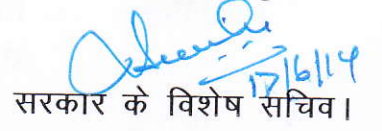 17/6/14
सरकार के विशेष सचिव।